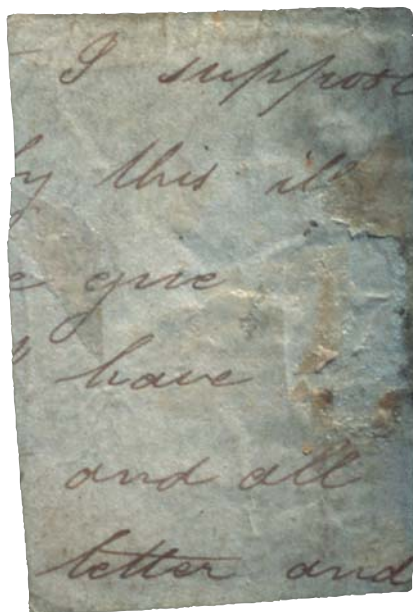 I suppose
by this ill
give
have
and all
letter and